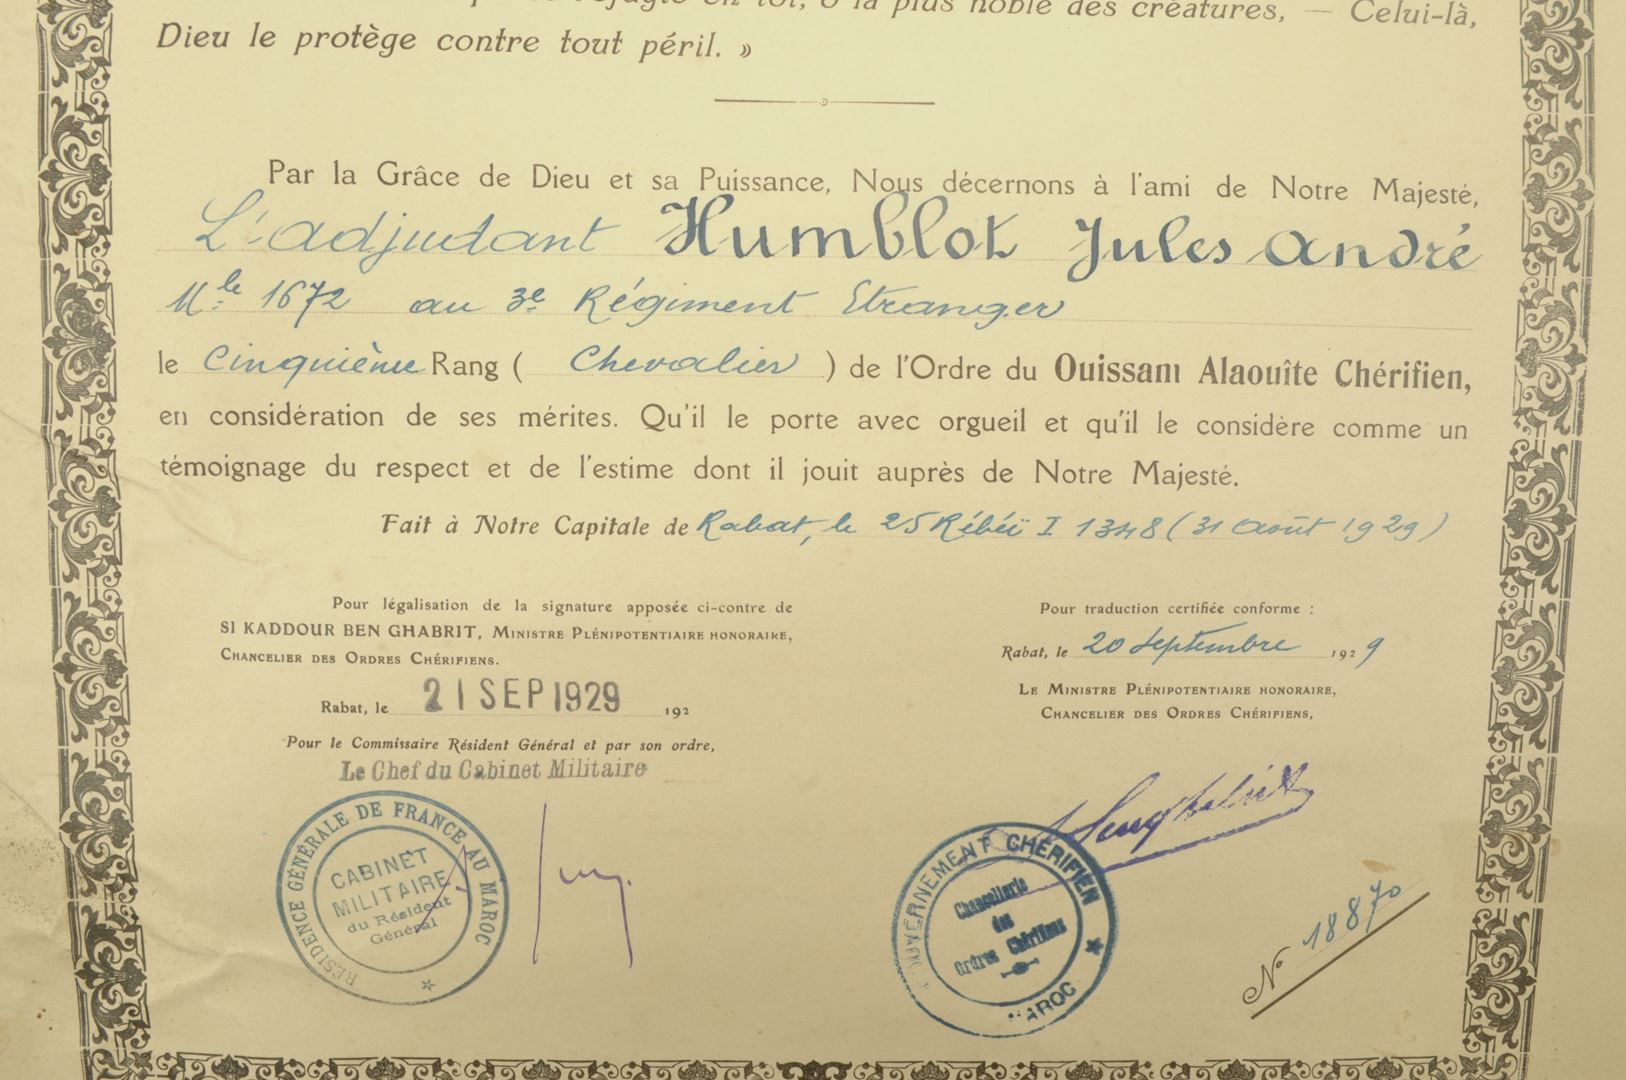 en toi, ô la plus noble des créatures, — Celui-là,
Dieu le protège contre tout péril. »
Par la Grâce de Dieu et sa Puissance, Nous décernons à l'ami de Notre Majesté,
L'adjudant Humblot Jules André
Mle 1672 au 3e Régiment Etranger
le Cinquième Rang ( Chevalier ) de l'Ordre du Ouissam Alaouîte Chérifien,
en considération de ses mérites. Qu'il le porte avec orgueil et qu'il le considère comme un
témoignage du respect et de l'estime dont il jouit auprès de Notre Majesté.
Fait à Notre Capitale de Rabat, le 25 Rébéï I 1348 (31 août 1929)
Pour légalisation de la signature apposée ci-contre de
SI KADDOUR BEN GHABRIT, Ministre Plénipotentiaire honoraire,
Chancelier des Ordres Chérifiens.
Rabat, le 21 SEP 1929 192
Pour le Commissaire Résident Général et par son ordre,
Le Chef du Cabinet Militaire
RÉSIDENCE GÉNÉRALE DE FRANCE AU MAROC
CABINET
MILITAIRE
du Résident
Général
Pour traduction certifiée conforme :
Rabat, le 20 Septembre 1929
Le Ministre Plénipotentiaire honoraire,
Chancelier des Ordres Chérifiens,
GOUVERNEMENT CHÉRIFIEN
Chancellerie
des
Ordres Chérifiens
MAROC
N° 18870